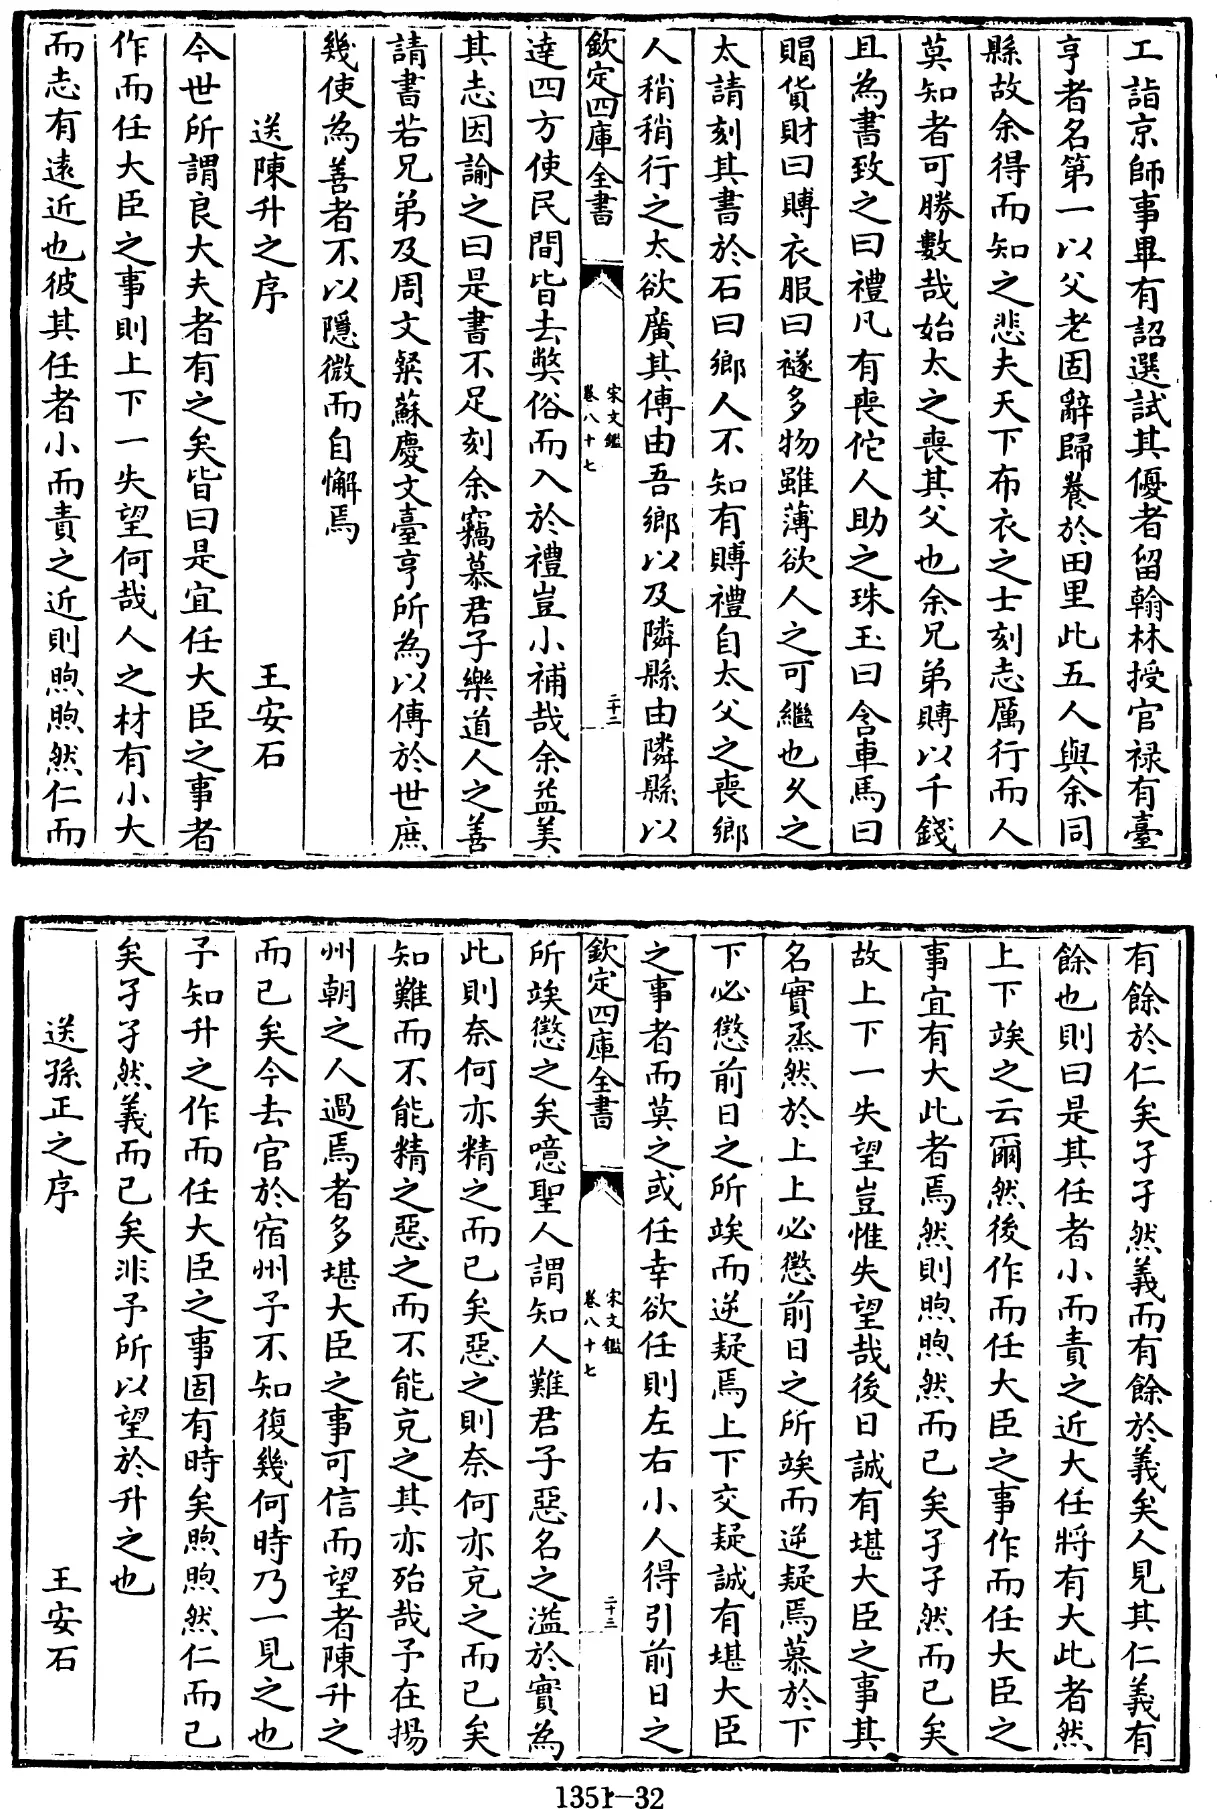 工詣京師事畢有詔選試其優者留翰林授官禄有臺
亨者名第一以父老固辭歸養於田里此五人與余同
縣故余得而知之悲夫天下布衣之士刻志厲行而人
莫知者可勝數哉始太之喪其父也余兄弟賻以千錢
且為書致之曰禮凡有喪佗人助之珠玉曰含車馬曰
賵貨財曰賻衣服曰襚多物雖薄欲人之可繼也久之
太請刻其書於石曰鄉人不知有賻禮自太父之喪鄉
人稍稍行之太欲廣其傳由吾鄉以及隣縣由隣縣以
欽定四庫全書
宋文鑑
卷八十七
二十二
達四方使民間皆去獘俗而入於禮豈小補哉余益美
其志因諭之曰是書不足刻余竊慕君子樂道人之善
請書若兄弟及周文粲蘇慶文臺亨所為以傳於世庶
幾使為善者不以隱微而自懈焉
送陳升之序 王安石
今世所謂良大夫者有之矣皆曰是宜任大臣之事者
作而任大臣之事則上下一失望何哉人之材有小大
而志有遠近也彼其任者小而責之近則煦煦然仁而
有餘於仁矣孑孑然義而有餘於義矣人見其仁義有
餘也則曰是其任者小而責之近大任將有大此者然
上下竢之云爾然後作而任大臣之事作而任大臣之
事宜有大此者焉然則煦煦然而已矣孑孑然而已矣
故上下一失望豈惟失望哉後日誠有堪大臣之事其
名實烝然於上上必懲前日之所竢而逆疑焉慕於下
下必懲前日之所竢而逆疑焉上下交疑誠有堪大臣
之事者而莫之或任幸欲任則左右小人得引前日之
欽定四庫全書
宋文鑑
卷八十七
二十三
所竢懲之矣噫聖人謂知人難君子惡名之溢於實為
此則奈何亦精之而已矣惡之則奈何亦克之而已矣
知難而不能精之惡之而不能克之其亦殆哉予在揚
州朝之人過焉者多堪大臣之事可信而望者陳升之
而已矣今去官於宿州予不知復幾何時乃一見之也
予知升之作而任大臣之事固有時矣煦煦然仁而已
矣孑孑然義而已矣非予所以望於升之也
送孫正之序 王安石
1351-32